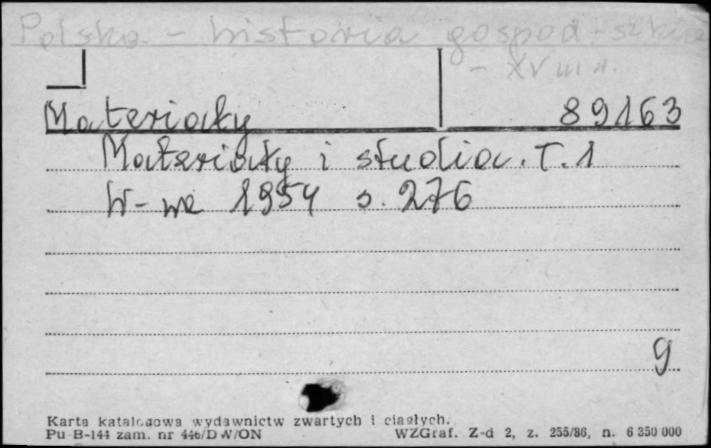 Polska - historia gospod.
- XVIII w.
Materiały 89163
Materiały i studia. T. 1
W-wa 1954 s. 276
g
Karta katalogowa wydawnictw zwartych i ciągłych.
Pu B-144 zam. nr 446/DW/ON WZGraf. Z-d 2, z. 255/86, n. 6 350 000